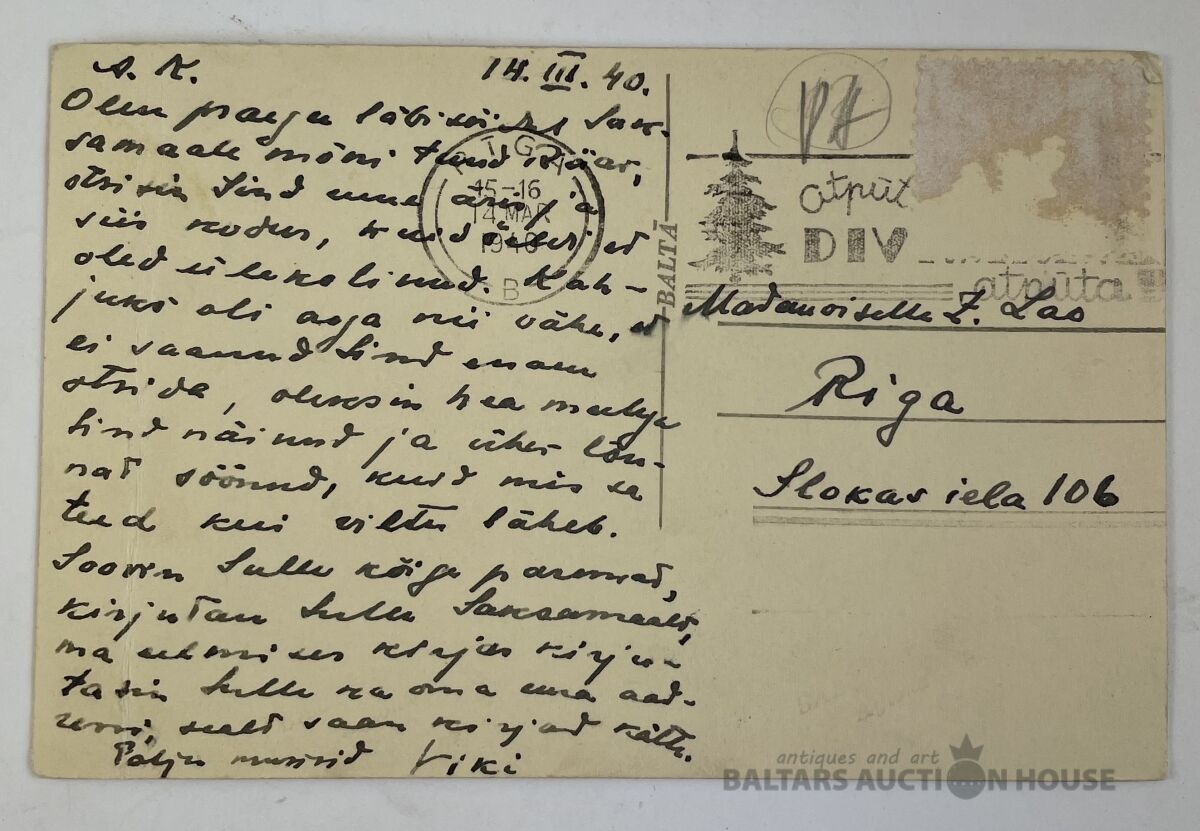 A. K. 14. III. 40.
Olen praegu läbisõidus Sak-
samaale mõni tund Riias,
otsisin Sind enne äris ja
siis kodus, kuid öeldi et
oled ülekolinud. Kah-
juks oli aega nii vähe, et
ei saanud Sind enam
otsida, oleksin hea meelega
Sind näinud ja ühes lõu-
nat söönud, kuid mis sa
teed kui viltu läheb.
Soovin Sulle kõige paremat,
kirjutan Sulle Saksamaalt,
ma eelmises kirjas kirju-
tasin Sulle ka oma uue aad-
ressi, sealt saan kirjad kätte.
Palju musisid Viki
RIGA
15-16
14 MAR
1940
B
BALTĀ
atpūt
DIV
atpūta
Mademoiselle Z. Lao
Riga
Slokas iela 106
antiques and art
BALTARS AUCTION HOUSE